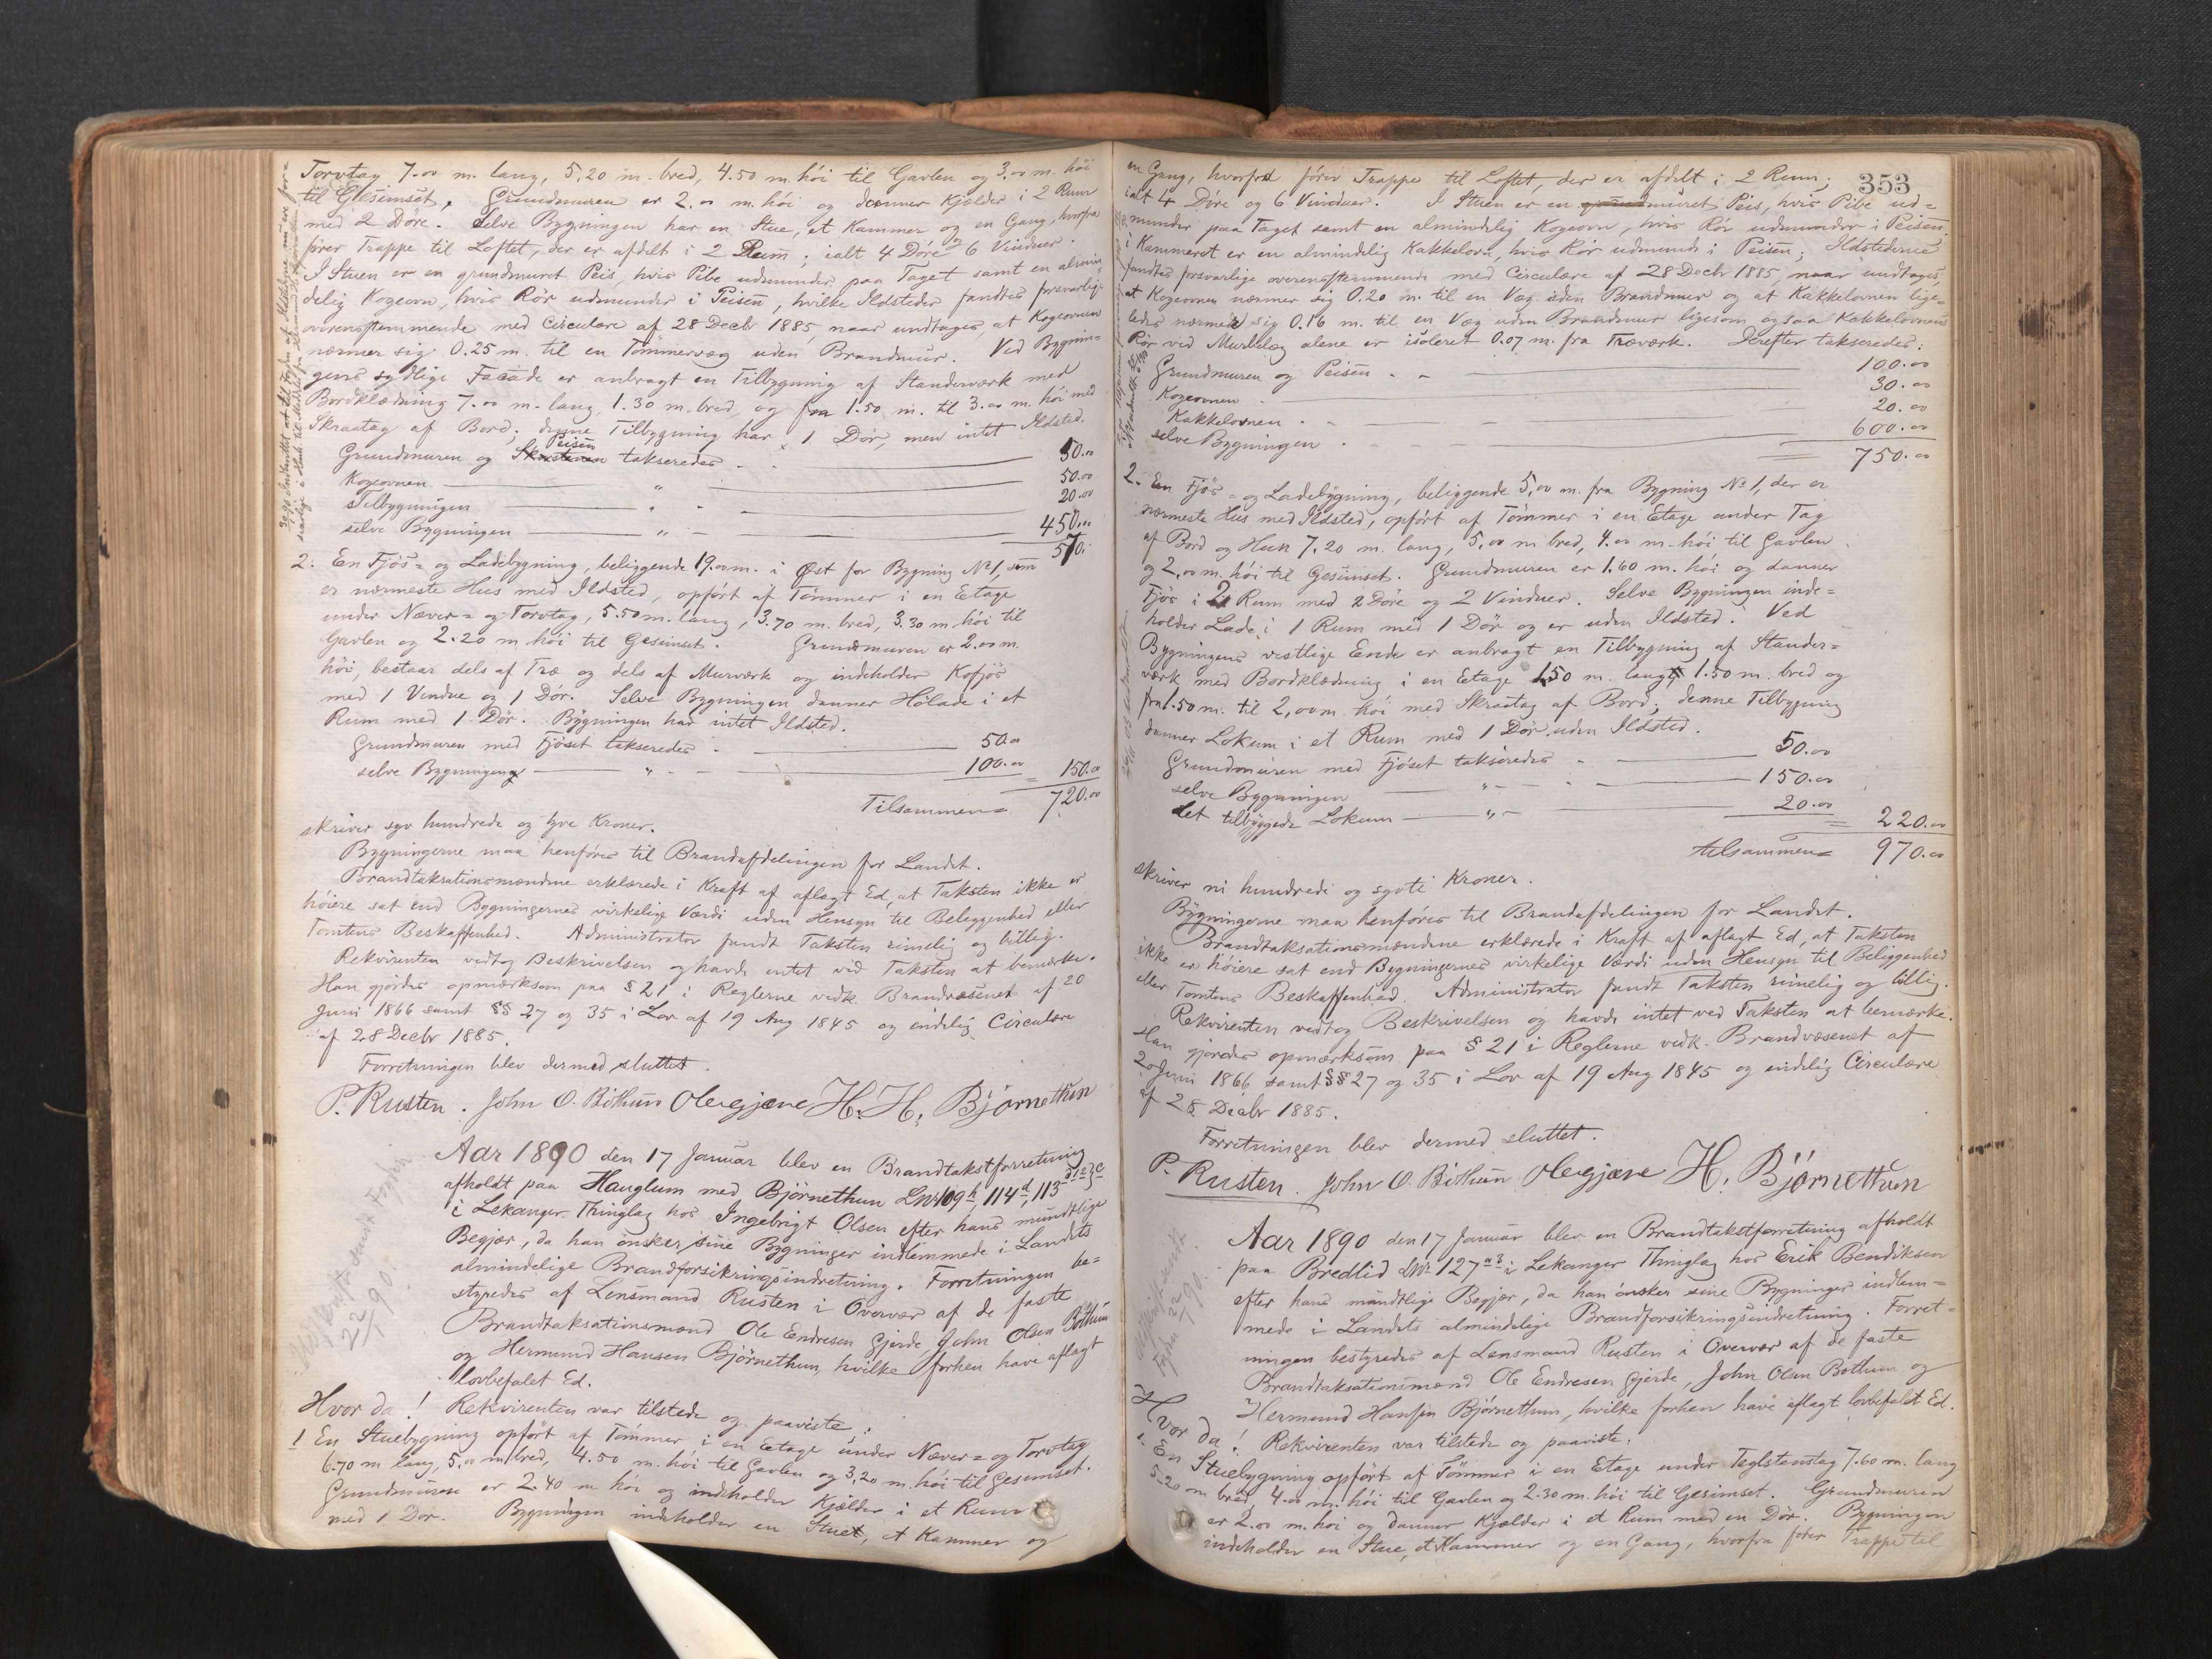 Torvtag 7.00 m. lang, 5,20 m. bred, 4.50 m. höi til Gavlen og 3.00 m. höi
til Gesimset. Grundmuren er 2.00 m. höi og danner Kjælder i 2 Rum
med 2 Döre. Selve Bygningen har en Stue, et Kammer og en Gang, hvorfra
förer Trappe til Loftet, der er afdelt i 2 Rum; ialt 4 Döre og 6 Vinduer.
I Stuen er en grundmuret Peis, hvis Pibe udmunder paa Taget samt en almin-
delig Kogeovn, hvis Rör udmunder i Peisen, hvilke Ildsteder fandtes forsvarlig
overensstemmende med Circulære af 28 Decbr 1885, naar undtages, at Kogeovnen
nærmer sig 0.25 m. til en Tömmervæg uden Brandmur. Ved Bygnin-
gens sydlige Facade er anbragt en Tilbygning af Standerværk med
Bordklædning 7.00 m. lang, 1.30 m. bred, og fra 1.50 m. til 3.00 m. höi med
Skraatag af Bord; denne Tilbygning har 1 Dör, men intet Ildsted.
Grundmuren og Skorstenen Peisen takseredes 50.00
Kogeovnen " 50.00
Tilbygningen " 20.00
selve Bygningen " 450.00
570.
2. En Fjös- og Ladebygning, beliggende 19.00 m. i Öst for Bygning No 1, som
er nærmeste Hus med Ildsted, opfört af Tömmer i en Etage
under Næver- og Torvtag, 5.50 m. lang, 3.70 m. bred, 3.30 m. höi til
Gavlen og 2.20 m. höi til Gesimset. Grundmuren er 2.00 m.
höi, bestaar dels af Træ og dels af Murværk og indeholder Kofjös
med 1 Vindue og 1 Dör. Selve Bygningen danner Hölade i et
Rum med 1 Dör. Bygningen har intet Ildsted.
Grundmuren med Fjöset takseredes 50.00
selve Bygningen " 100.00 = 150.00
Tilsammen = 720.00
skriver syv hundrede og tyve Kroner.
Bygningerne maa henföres til Brandafdelingen for Landet.
Brandtaksationsmændene erklærede i Kraft af aflagt Ed, at Taksten ikke er
höiere sat end Bygningernes virkelige Værdi uden Hensyn til Beleggenhed eller
Tomtens Beskaffenhed. Administrator fandt Taksten rimelig og billig.
Rekvirenten vedtog Beskrivelsen og havde intet ved Taksten at bemærke.
Han gjordes opmærksom paa § 21 i Reglerne vedk. Brandvæsenet af 20
Juni 1866 samt §§ 27 og 35 i Lov af 19 Aug 1845 og endelig Circulære
af 28 Decbr 1885.
Forretningen blev dermed sluttet.
P. Rusten. John O. Böthun Ole Gjære H. H. Björnethun
Aar 1890 den 17 Januar blev en Brandtakstforretning
afholdt paa Hauglum med Björnethun LNr 109 h, 114 d, 113
i Lekanger Thinglag hos Ingebrigt Olsen efter hans mundtlige
Begjær, da han önsker sine Bygninger indlemmede i Landets
almindelige Brandforsikringsindretning. Forretningen be-
styredes af Lensmand Rusten i Overvær af de faste
Brandtaksationsmænd Ole Endresen Gjerde, John Olsen Böthun
og Hermund Hansen Björnethun, hvilke forhen have aflagt
lovbefalet Ed.
Hvor da! Rekvirenten var tilstede og paaviste:
1 En Stuebygning opfört af Tömmer i en Etage under Næver- og Torvtag
6.70 m lang, 5.00 m bred, 4.50 m. höi til Gavlen og 3,20 m. höi til Gesimset.
Grundmuren er 2.40 m höi og indeholder Kjælder i et Rum
med 1 Dör. Bygningen indeholder en Stue, et Kammer og
353
en Gang, hvorfra förer Trappe til Loftet, der er afdelt i 2 Rum;
ialt 4 Döre og 6 Vinduer. I Stuen er en grundmuret Peis, hvis Pibe ud-
munder paa Taget samt en almindelig Kogeovn, hvis Rör udmunder i Peisen.
i Kammeret er en almindelig Kakkelovn, hvis Rör udmunder i Peisen; Ildstederne
fandtes forsvarlige overensstemmende med Circulære af 28 Decbr 1885, naar undtages,
at Kogeovnen nærmer sig 0.20 m. til en Væg uden Brandmur og at Kakkelovnen lige-
ledes nærmer sig 0.16 m. til en Væg uden Brandmur ligesom ogsaa Kakkelovnens
Rör ved Murbelæg alene er isoleret 0.07 m. fra Træværk. Derefter takseredes:
Grundmuren og Peisen 100.00
Kogeovnen 30.00
Kakkelovnen 20.00
selve Bygningen 600.00
750.00
2. En Fjös- og Ladebygning, beliggende 5,00 m. fra Bygning No 1, der er
nærmeste Hus med Ildsted, opfört af Tömmer i en Etage under Tag
af Bord og Hun 7.20 m. lang, 5,00 m bred, 4.00 m. höi til Gavlen
og 2,00 m. höi til Gesimset. Grundmuren er 1.60 m. höi og danner
Fjös i 2 Rum med 2 Döre og 2 Vinduer. Selve Bygningen inde-
holder Lade i 1 Rum med 1 Dör og er uden Ildsted. Ved
Bygningens vestlige Ende er anbragt en Tilbygning af Stander-
værk med Bordklædning i en Etage 1.50 m. lang, 1.50 m. bred og
fra 1.50 m. til 2,00 m. höi med Skraatag af Bord; denne Tilbygning
danner Lokum i et Rum med 1 Dör uden Ildsted.
Grundmuren med Fjöset takseredes 50.00
selve Bygningen " 150.00
det tilbyggede Lokum " 20.00 = 220.00
tilsammen = 970.00
skriver ni hundrede og sytti Kroner.
Bygningerne maa henföres til Brandafdelingen for Landet.
Brandtaksationsmændene erklærede i Kraft af aflagt Ed, at Taksten
ikke er höiere sat end Bygningernes virkelige Værdi uden Hensyn til Beliggenhed
eller Tomtens Beskaffenhed. Administrator fandt Taksten rimelig og billig.
Rekvirenten vedtog Beskrivelsen og havde intet ved Taksten at bemærke.
Han gjordes opmærksom paa § 21 i Reglerne vedk. Brandvæsenet af
20 Juni 1866 samt §§ 27 og 35 i Lov af 19 Aug 1845 og endelig Circulære
af 28 Decbr 1885.
Forretningen blev dermed sluttet.
P. Rusten. John O. Böthun Ole Gjære H. Björnethun
Aar 1890 den 17 Januar blev en Brandtakstforretning afholdt
paa Bredlid LNr. 127 i Lekanger Thinglag hos Erik Bendiksen
efter hans mundtlige Begjær, da han önsker sine Bygninger indlem-
mede i Landets almindelige Brandforsikringsindretning. Forret-
ningen bestyredes af Lensmand Rusten i Overvær af de faste
Brandtaksationsmænd Ole Endresen Gjerde, John Olsen Böthun og
Hermund Hansen Björnethun, hvilke forhen have aflagt lovbefalet Ed.
Hvor da! Rekvirenten var tilstede og paaviste:
1. En Stuebygning opfört af Tömmer i en Etage under Teglstenstag 7.60 m. lang
5.20 m bred, 4.00 m. höi til Gavlen og 2.30 m. höi til Gesimset. Grundmuren
er 2.00 m. höi og danner Kjælder i et Rum med en Dör. Bygningen
indeholder en Stue, et Kammer og en Gang, hvorfra förer Trappe til